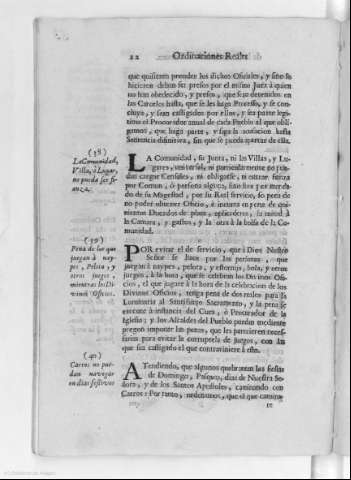 22 Ordinaciones Reales
que quisieren prender los dichos Oficiales, y sino lo
hicieren deban ser presos por el mismo Juez à quien
no han obedecido, y presos, que sean detenidos en
las Carceles hasta, que se les haga Processo, y se con-
cluya, y sean castigados por èl, y sea parte legiti-
ma el Procurador anual de cada Pueblo al que obli-
gamos, que haga parte, y siga la acusacion hasta
Sentencia difinitiva, sin que se pueda apartar de ella.
(38)
La Comunidad,
Villa, ò Lugar,
no pueda ser fi-
anza.
LA Comunidad, su Junta, ni las Villas, y Lu-
gares, universal, ni particularmente no pue-
dan cargar Censales, ni obligarse, ni otorgar fianza
por Comun, ò persona alguna, sino fuere por manda-
do de su Magestad, por su Real servicio, so pena de
no poder obtener Oficio, è incurra en pena de qui-
nientos Ducados de plata, aplicaderos, la mitad à
la Camara, y gastos, y la otra à la bolsa de la Co-
munidad.
(39)
Pena de los que
juegan à nay-
pes, Pelota, y
otros juegos,
mientras los Di-
vinos Oficios.
POR evitar el de servicio, que à Dios Nuestro
Señor se hace por las personas, que
juegan à naypes, pelota, y esferas, bolas, y otros
juegos, à la hora, que se celebran los Divinos Ofi-
cios, el que jugare à la hora de la celebracion de los
Divinos Oficios, tenga pena de dos reales para la
Luminaria al Santissimo Sacramento, y la pena se
execute à instancia del Cura, ò Procurador de la
Iglesia; y los Alcaldes del Pueblo puedan mediante
pregon imponer las penas, que les parecieren neces-
sarias para evitar la corruptela de juegos, con las
que sea castigado el que contraviniere à esto.
(40)
Carros no pue-
dan navegar
en dias festivos
ATendiendo, que algunos quebrantan las fiestas
de Domingo, Pasquas, dias de Nuestra Se-
ñora, y de los Santos Apostoles, caminando con
Carros: Por tanto, ordenamos, que el que camina-
re